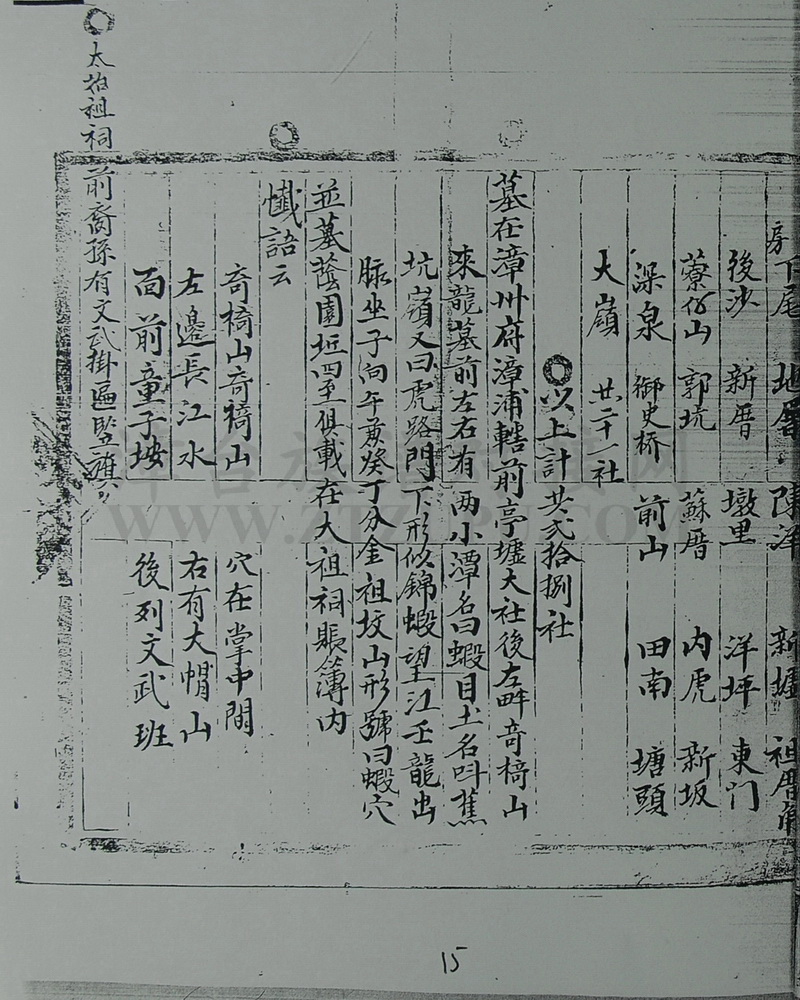 房下尾 地厝 陳洋 新墟 祖厝角
後沙 新厝 墩里 洋坪 東门
蔡公山 郭坑 蘇厝 内虎 新坂
深泉 御史桥 前山 田南 塘頭
大嶺 共二十一社
以上計共弍拾捌社
墓在漳州府漳浦轄前亭墟大社後左畔竒槗山
來龍墓前左右有两小潭名曰蝦目土名呌蕉
坑嶺又曰虎路門下形似錦蝦望江壬龍出
脉坐子向午兼癸丁分金祖坟山形號曰蝦穴
並墓蔭園坵四至俱載在大祖祠賬簿内
懴語云
竒槗山竒槗山 穴在掌中間
左邊長江水 右有大帽山
面前童子按 後列文武班
前裔孫有文武掛匾竪旗
太始祖祠
15
www.ztzupu.com